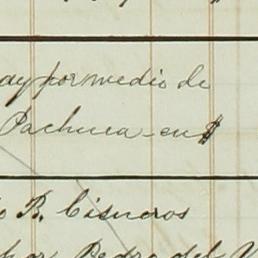 ay por medio de
Pachuca - en $
o B. Cisneros
por Pedro del V